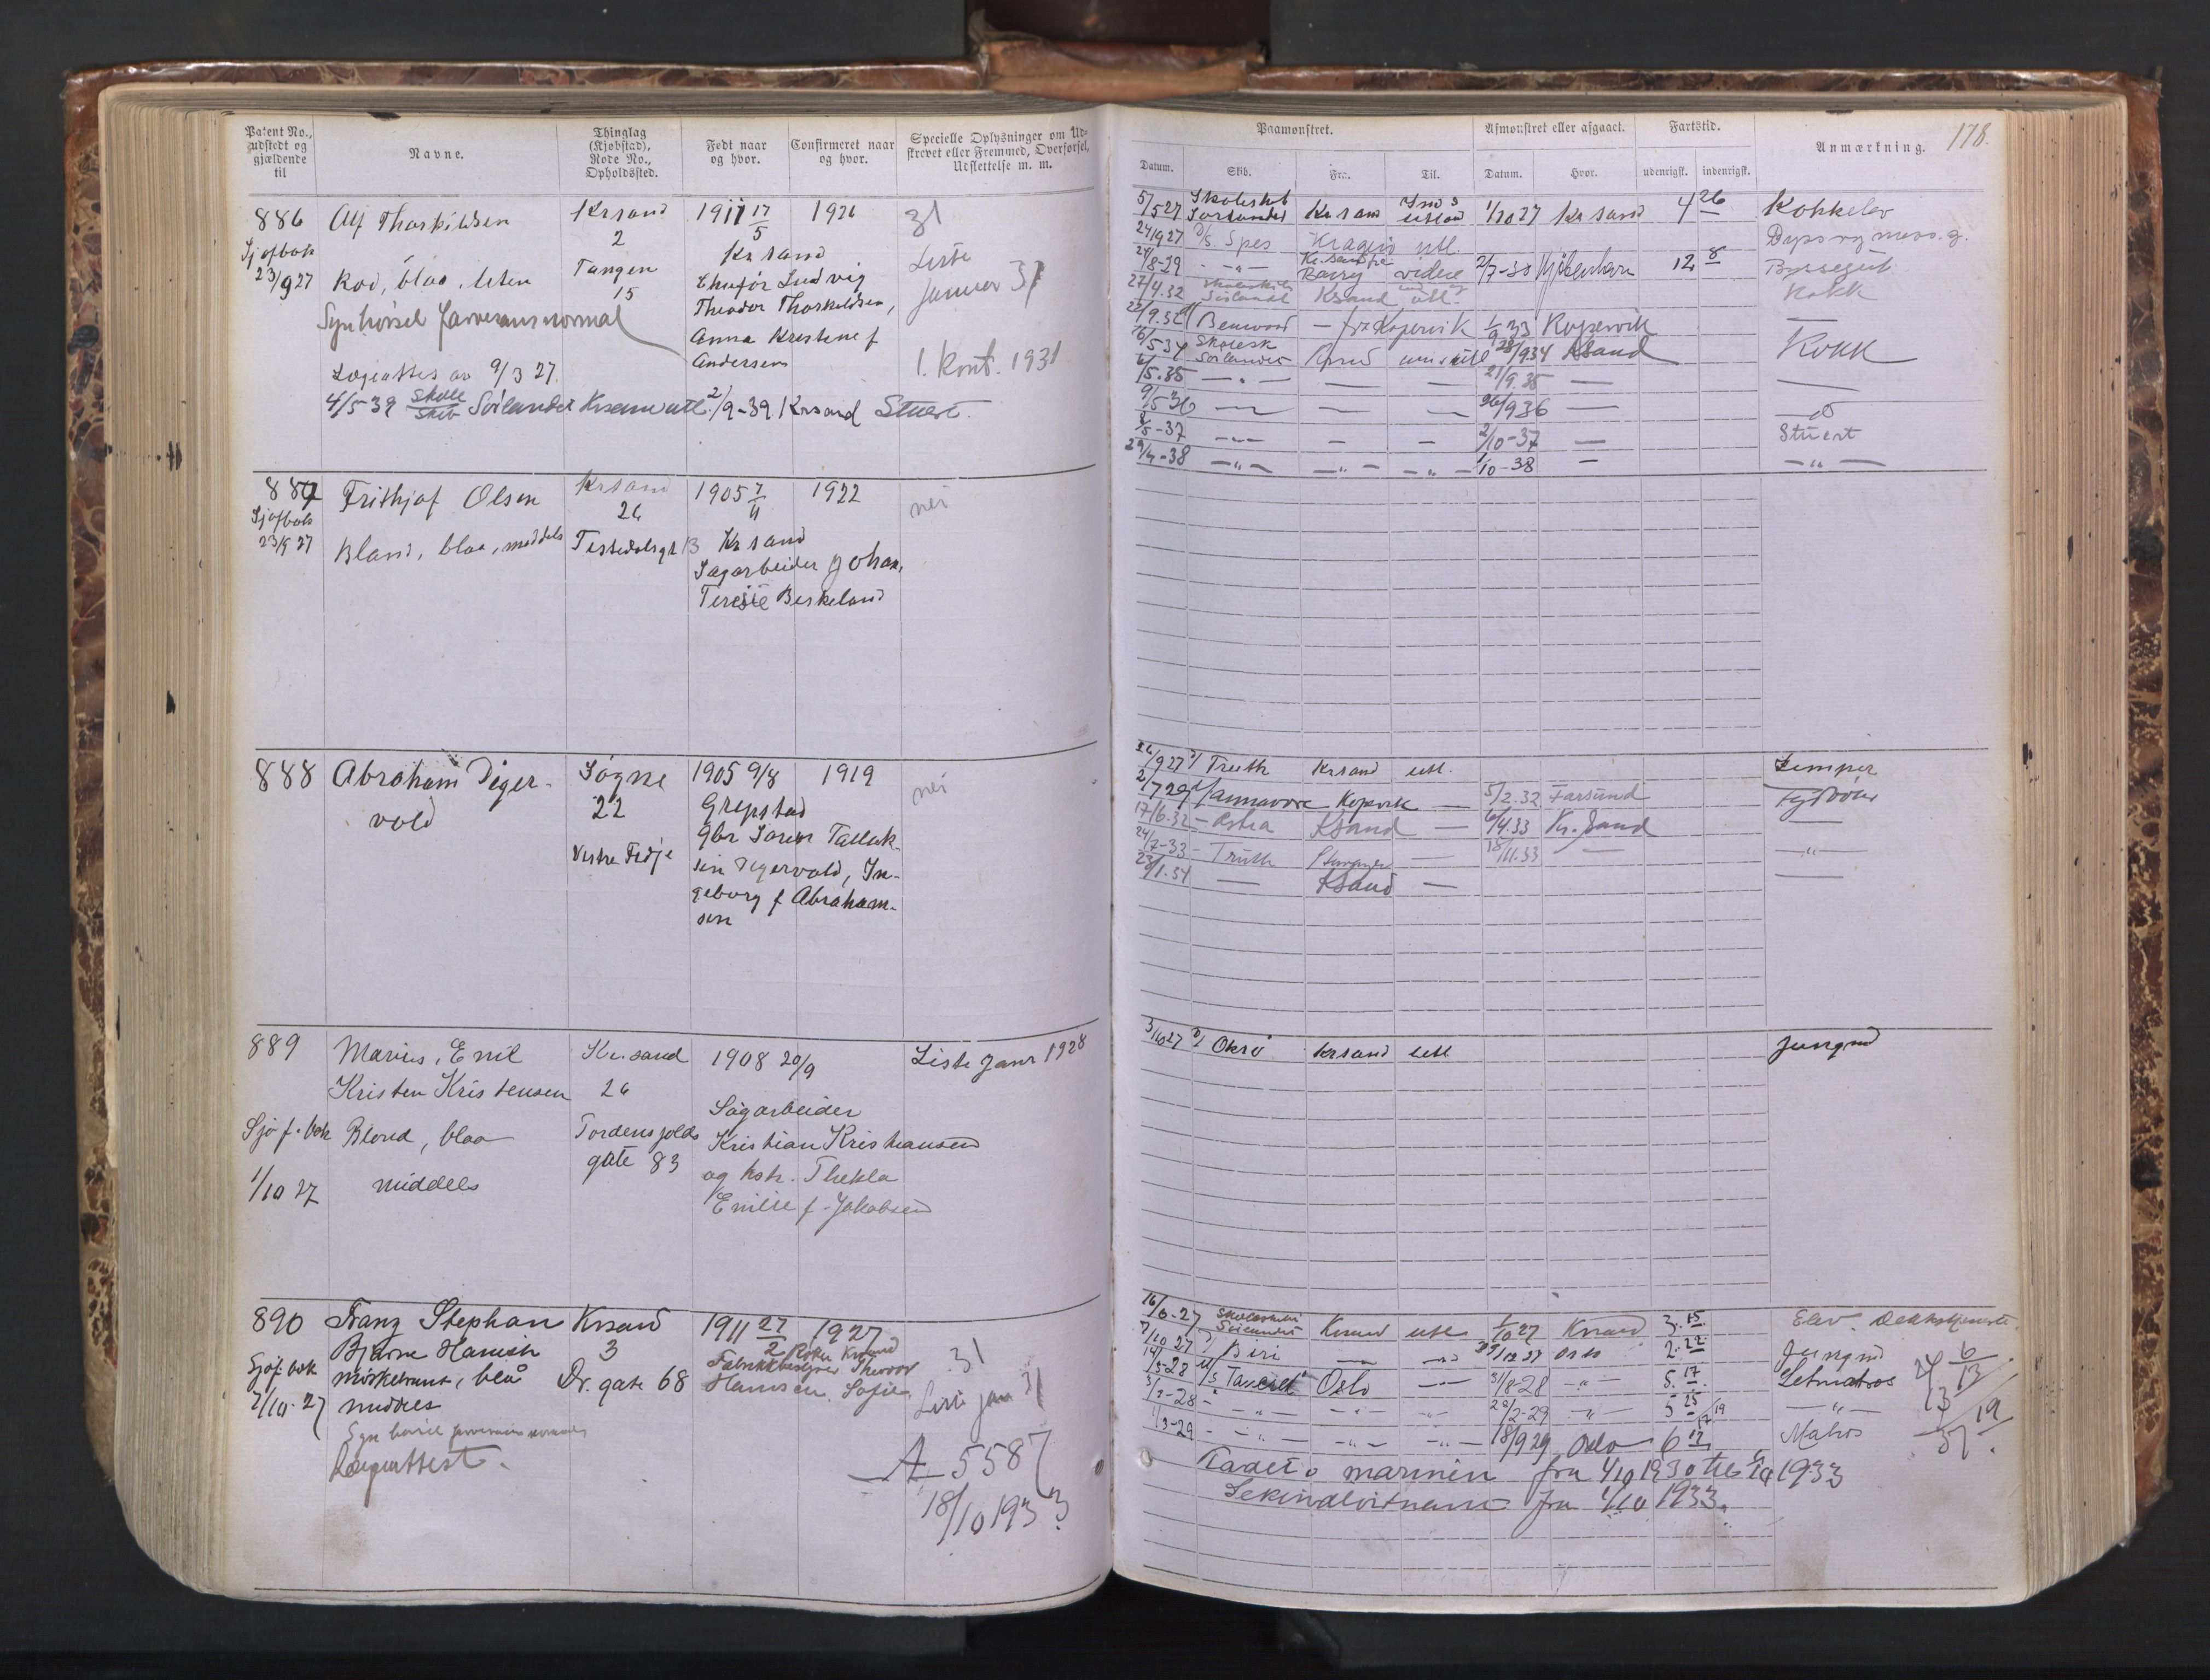 Patent No., udstedt og gjældende til
Navne.
Thinglag (Kjøbstad), Rode No., Opholdssted.
Født naar og hvor.
Confirmeret naar og hvor.
Specielle Oplysninger om Udskrevet eller Fremmed, Overførsel, Udslettelse m. m.
Paamønstret.
Afmønstret eller afgaaet.
Fartstid.
Anmærkning.
178.
Datum.
Skib.
Fra.
Til.
Datum.
Hvor.
udenrigsk.
indenrigsk.
886
Sjøfbok
23/9 27
Alf Thorkildsen
Rød, blaa, liten
Syn hørsel farvesans normal
Lægeattes av 9/3 27.
Krsand
2
Tangen
15
1911 17/5
Kr sand
Chufør Ludvig
Theodor Thorkildsen,
Anna Kristine f
Andersen
1926
31
Liste
Januar 31
1. Kont. 1931
4/5-39 Skole Skib Sørlandet Krsand utl. 2/9-39 Krsand Stuert.
5/5 27 Skoleskib Sørlandet Kr sand 1/10 27 Kr sand 4 26 Kokkelev
24/9 27 D/S. Spes Kragerø utl.
24/8-29 Barry videre 2/7-30 Kjøbenhavn 12 8
27/4.32 Skoleskib Sørlandt Krsand utl. Kokk
Benwood - fra Kopervik 1/9 33 Kopervik
16/5 34 Skolesk Sørlandet 28/9 34 Ksand Kokk
6/5.35 21/9.35
9/5 36 26/9 36
2/5-37 2/10-37 Stuert
29/4-38 1/10-38
887
Sjøfbok
23/9 27
Frithjof Olsen
Blond, blaa, middels
Krsand
26
Tistedalsgt 13
1905 7/11
Kr sand
Sagarbeider Johan,
Terese Birkeland
1922
nei
888
Abraham Diger-
vold
Søgne
22
Vestre Fidje
1905 9/8
Grepstad
Gbr Søren Tallak-
sen Digervold, In-
geborg f Abraham-
sen
1919
nei
26/9 27 D/ Truth Krsand utl. Lemper
2/7 29 Kopvik 5/2.32 Farsund Fyrbøter
17/6.32 - Astra Ksand 6/4.33 Kr. sand
24/7-33 - Truth 18/11.33
23/1.34 Ksand
889
Sjøf. bok
1/10 27
Marius, Emil
Kristen Kristensen
Blond, blaa
middels
Kr.sand
26
Tordenskjolds
gate 83
1908 20/9
Sagarbeider
Kristian Kristiansen
og hstr. Thekla
Emilie f. Jakobsen
Liste Janr 1928
3/10 27 D/ Oksø Krsand utl Jungmd
890
Sjøf bok
7/10-27
Franz Stephan
Bjarne Hanisch
mørkebrunt, blå
middels
Syn hørsel farvesans normal
Lægeattest.
Krsand
3
Dr. gate 68
1911 27/2
1927
Krsand
Fabrikkbestyrer
Sofie
31
Liste jan 31
A 5587
18/10 1933
16/6-27 Skoleskibet Sørlandet Krsand utl 1/10 27 Krsand 3. 15 Elev. Dekkstjeneste
7/10 27 D/ Biri 12 27 Oslo 2. 22 Jungmd
14/3-28 M/S Taucred Oslo 31/8-28 5. 17 Letmatros
28/2-29 5 25
1/3-29 18/9 29 Oslo 6 17 Matros
24 6/13
13
37/19
Kadet i marinen fra 4/10 1930 til 1933
Sekondløitnant fra 1/10 1933.